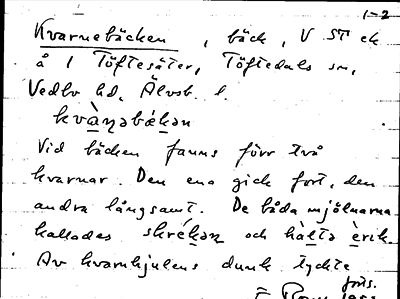 1-2
Kvarnebäcken, bäck, V ST ek
å 1 Töftesäter, Töftedals sn,
Vedbo hd, Älvsb. l.
kvàṇəbækən
Vid bäcken fanns förr två
kvarnar. Den ena gick fort, den
andra långsamt. De båda mjölnarna
kallades skrékən och hàltə èrik.
Av kvarnhjulens dunk tyckte
forts.